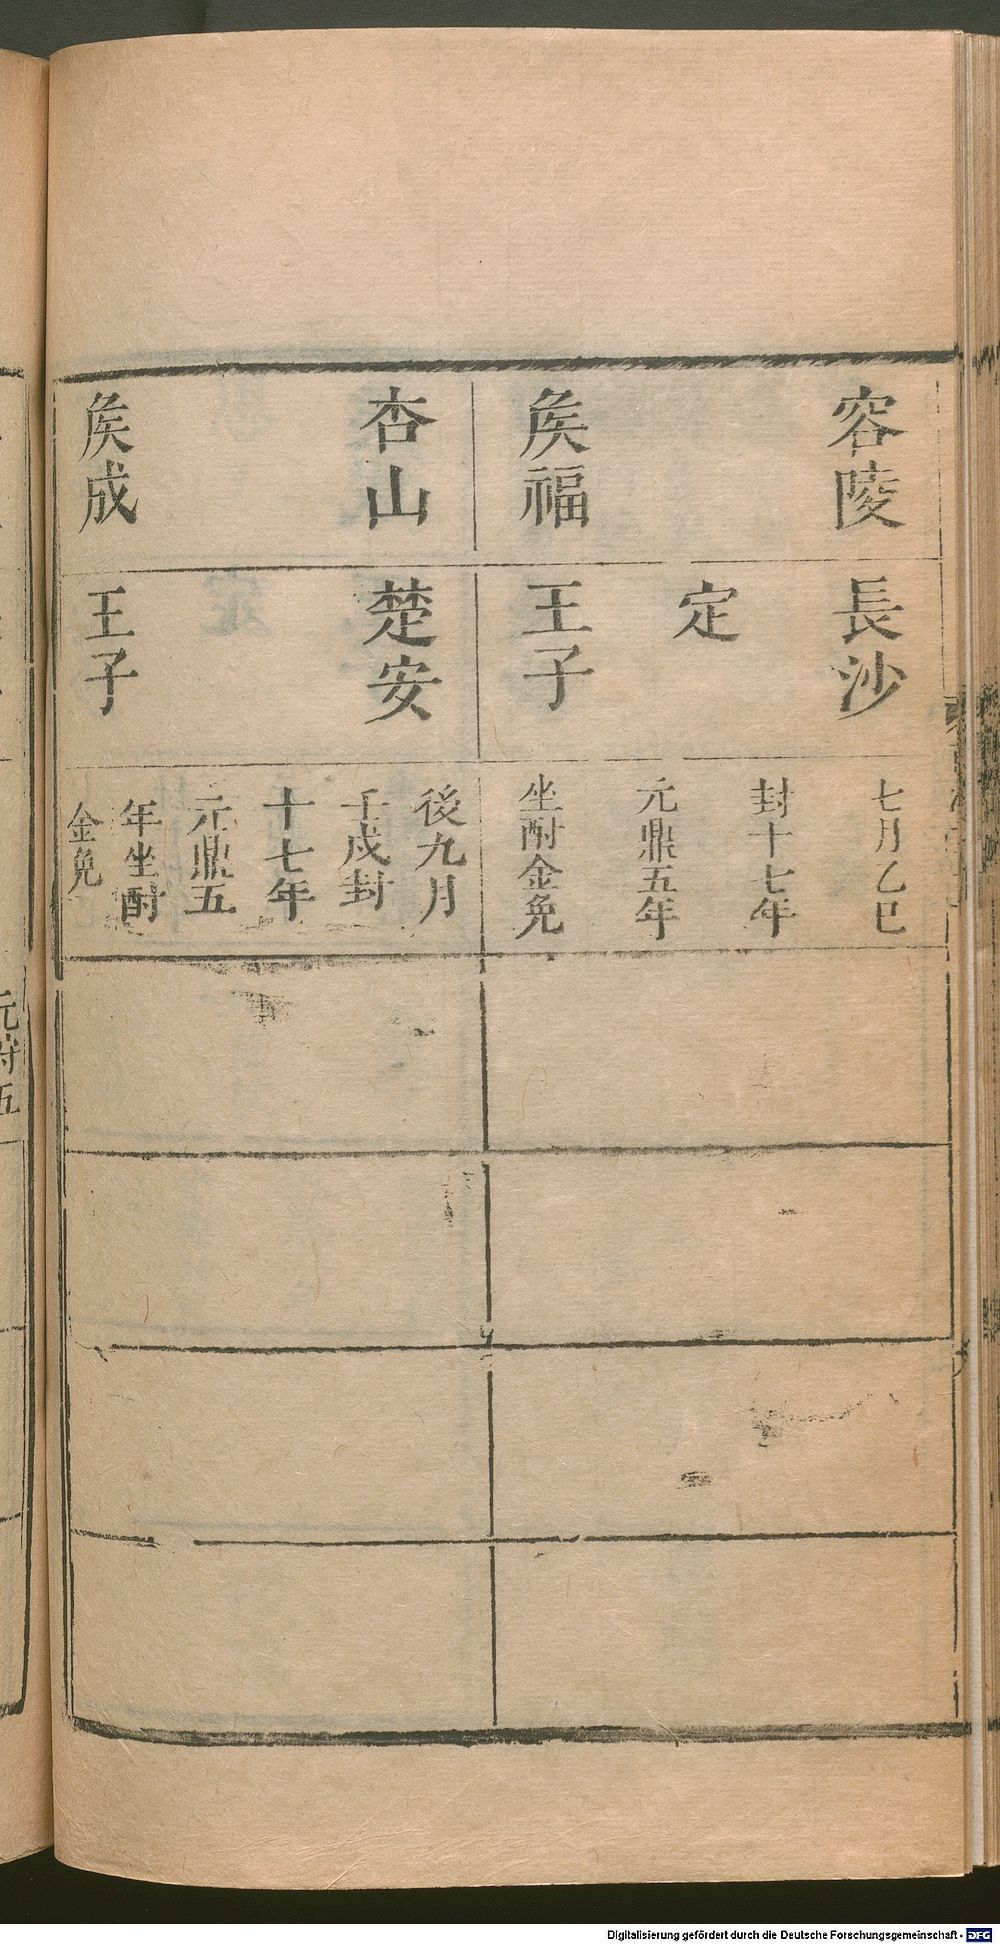 容陵
侯福
長沙
定
王子
七月乙巳
封十七年
元鼎五年
坐酎金免
杏山
侯成
楚安
王子
後九月
壬戌封
十七年
元鼎五
年坐酎
金免
Digitalisierung gefördert durch die Deutsche Forschungsgemeinschaft - DFG